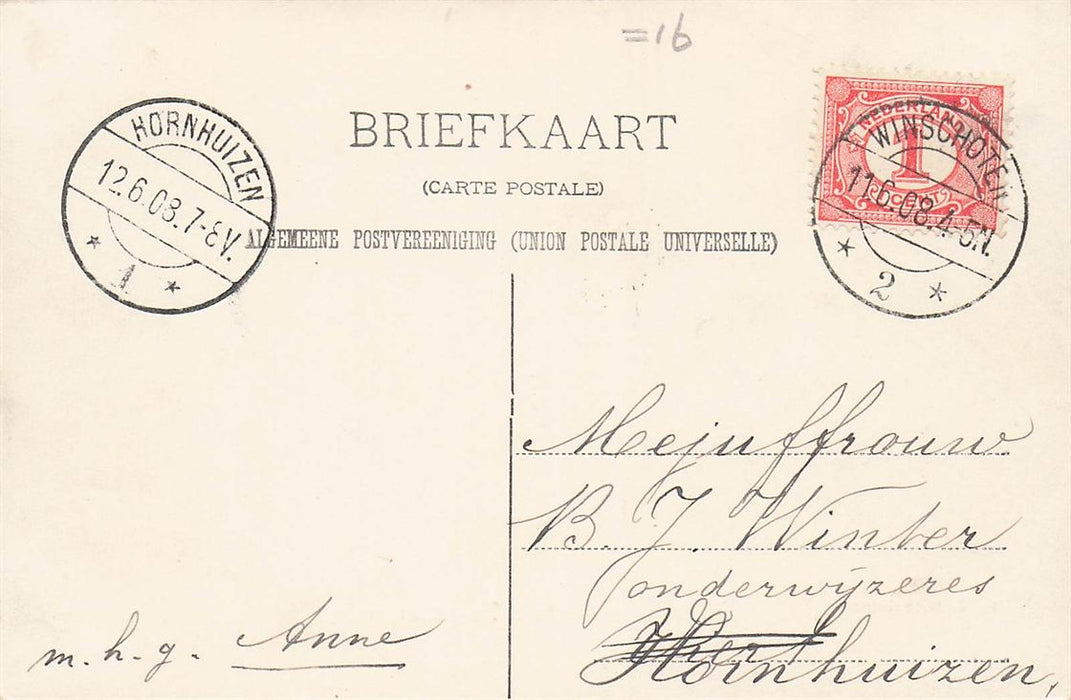 =16
BRIEFKAART
(CARTE POSTALE)
ALGEMEENE POSTVEREENIGING (UNION POSTALE UNIVERSELLE)
HORNHUIZEN
12.6.08.7-8V.
1
NEDERLAND
1
CENT
WINSCHOTEN
11.6.08.4-5N.
2
Mejuffrouw
B. J. Winter
onderwijzeres
Hornhuizen,
m. h. g. Anne